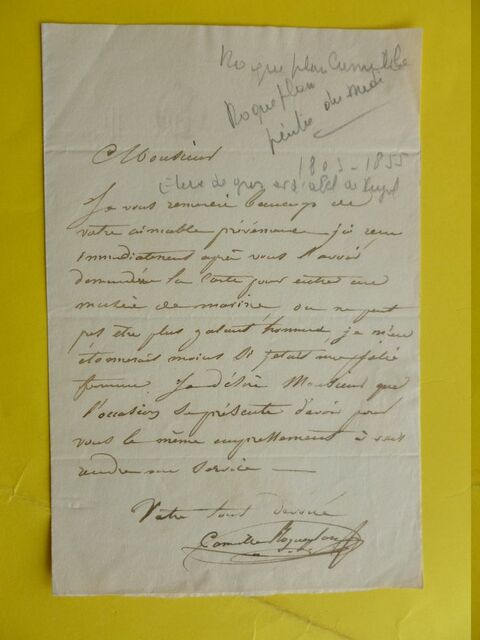 Roqueplan Camille
Roqueplan
peintre du midi
1803-1855
Elève de gros et d'abel de Pujol
Monsieur
Je vous remercie beaucoup de
votre aimable prévenance j'ai reçu
immédiatement après vous l'avoir
demandée la carte pour entrer au
musée de marine, on ne peut
pas être plus galant homme je m'en
étonnerais moins si j'etais une jolie
femme Je désire Monsieur que
l'occasion se présente d'avoir pour
vous le même empressement à vous
rendre un service
Votre tout dévoué
Camille Roqueplan